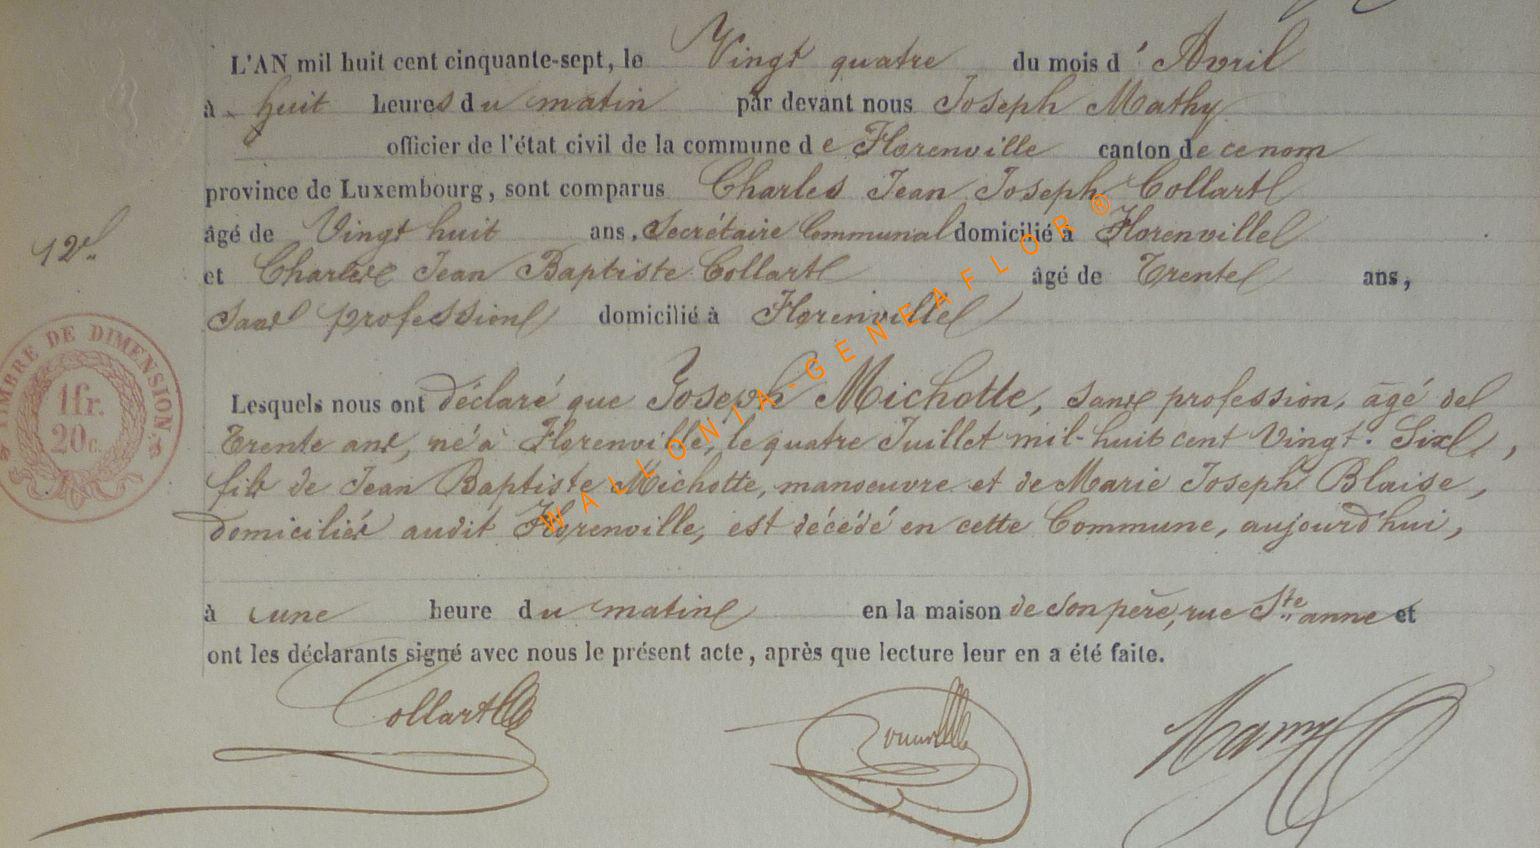 L'AN mil huit cent cinquante-sept, le Vingt quatre du mois d' Avril
à huit heures du matin par devant nous Joseph Mathy
officier de l'état civil de la commune de Florenville canton de ce nom
province de Luxembourg, sont comparus Charles Jean Joseph Collart
âgé de Vingt huit ans, Secrétaire Communal domicilié à Florenville
12e
et Charles Jean Baptiste Collart âgé de Trente ans,
sans profession domicilié à Florenville
TIMBRE DE DIMENSION
1 fr.
20 c.
Lesquels nous ont déclaré que Joseph Michotte, sans profession, âgé de
Trente ans, né à Florenville, le quatre Juillet mil-huit cent Vingt-Six,
fils de Jean Baptiste Michotte, manoeuvre et de Marie Joseph Blaise,
domiciliés audit Florenville, est décédé en cette Commune, aujourd'hui,
à une heure du matin en la maison de son père, rue Ste anne et
ont les déclarants signé avec nous le présent acte, après que lecture leur en a été faite.
Collart
WALLONIA-GENEAFLOR®